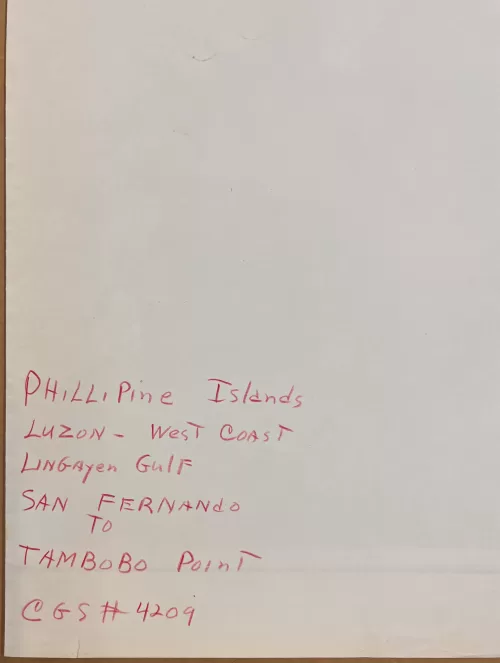 PHILLIPine Islands
LUZON - WesT COAST
LINGAyen GulF
SAN FERNANdo
TO
TAMBOBO PoinT
CGS # 4209